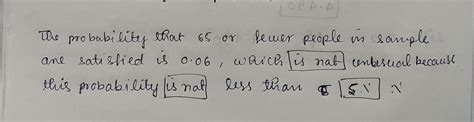 The probability that 65 or fewer people in sample
are satisfied is 0.06, which is not unusual because
this probability is not less than 5%